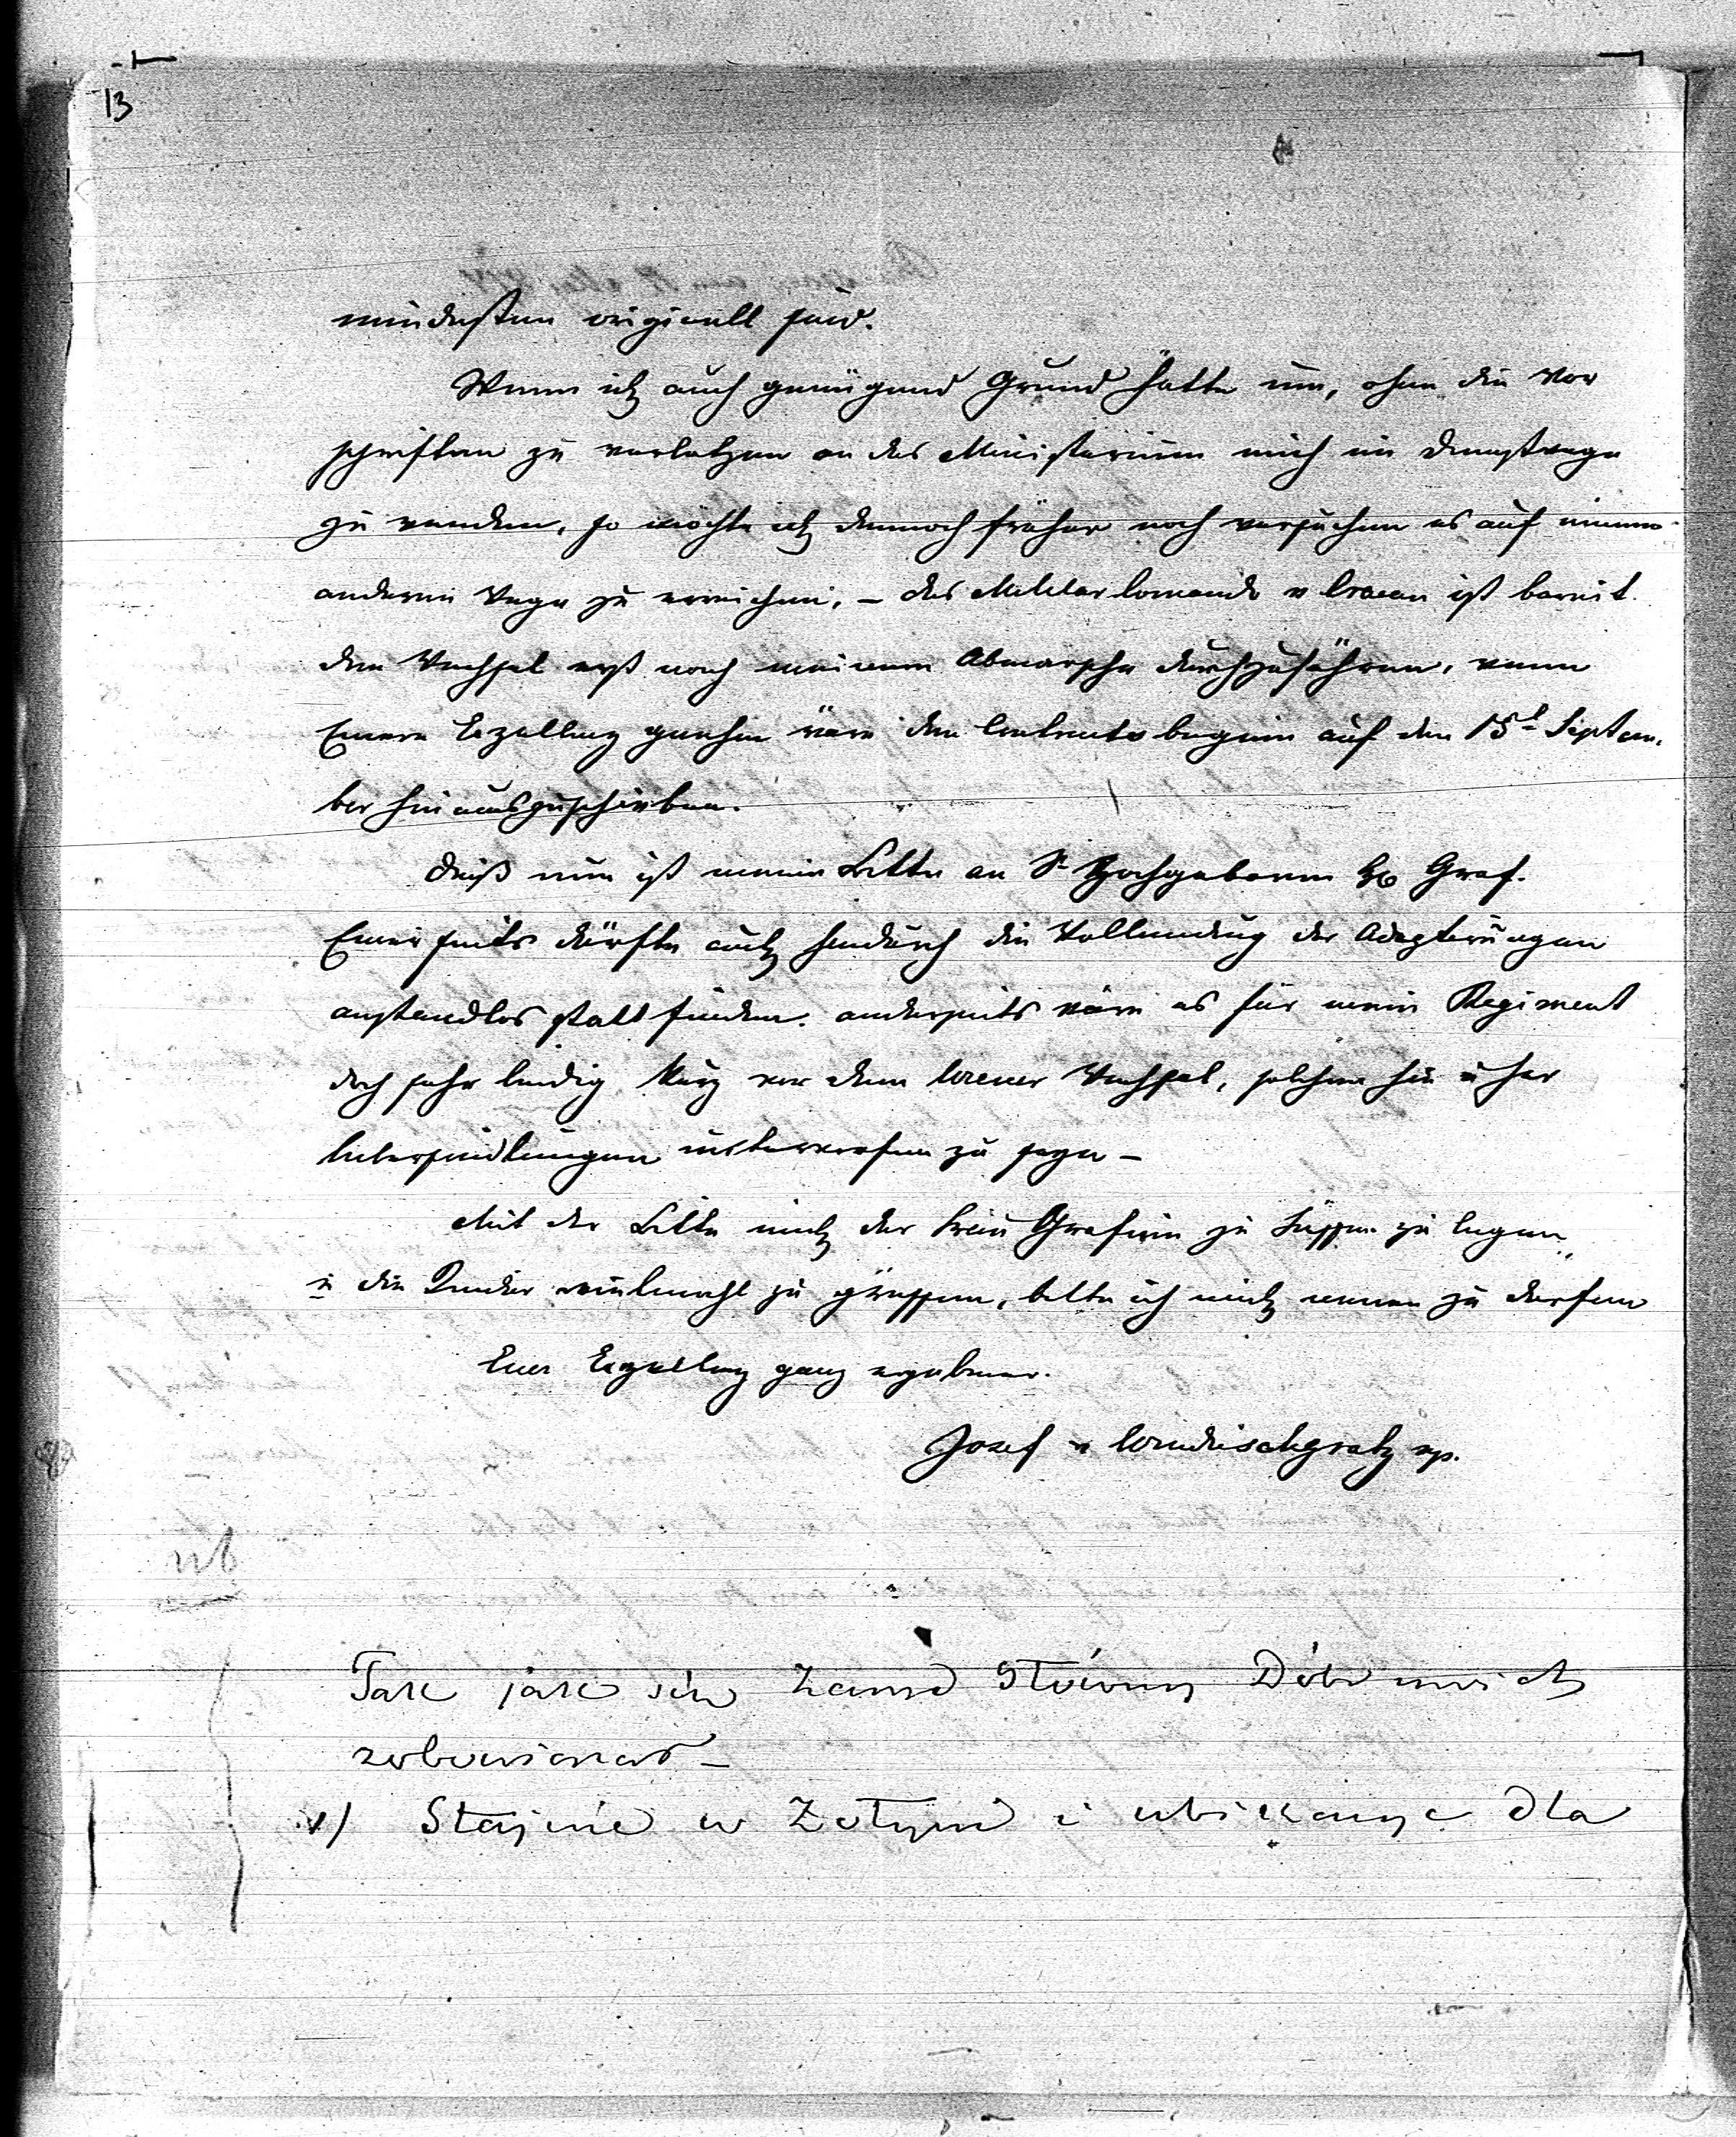 13
mindestens originell sind.
Wenn ich auch genügend Grund hätte um, ohne die Vor
schriften zu verletzen an das Ministerium mich im Dienstwege
zu wenden, so möchte ich dennoch früher noch versuchen es auf einem
anderen Wege zu erreichen. – das Militar Comando v Cracau ist bereit
den Wechsel erst nach meinem Abmarsche durchzuführen, wenn
Euere Exzellenz genehm wäre den Contracts beginn auf den 15t Septem.
ber hinauszuschieben.
Dieß nun ist meine Bitte an Sr Hochgeboren H Graf.
Einerseits dürfte auch hiedurch die Vollendung der Adaptirungen
anstandlos stattfinden. anderseits wäre es für mein Regiment
doch sehr leidig kurz vor dem Wechsel, solchen hin u her
Uebersiedlungen unterworfen zu seyn –
Mit der Bitte mich der Frau Gräfin zu Füssen zu legen
u die Kinder vielmahl zu grüssen, bitte ich mich nennen zu dürfen
Euer Exzellenz ganz ergebener.
Josef v Windischgratz mp.
Tak jak się Zarząd Dóbr
zobowiązał –
Stajnie w Żołyni i ubikacye dla